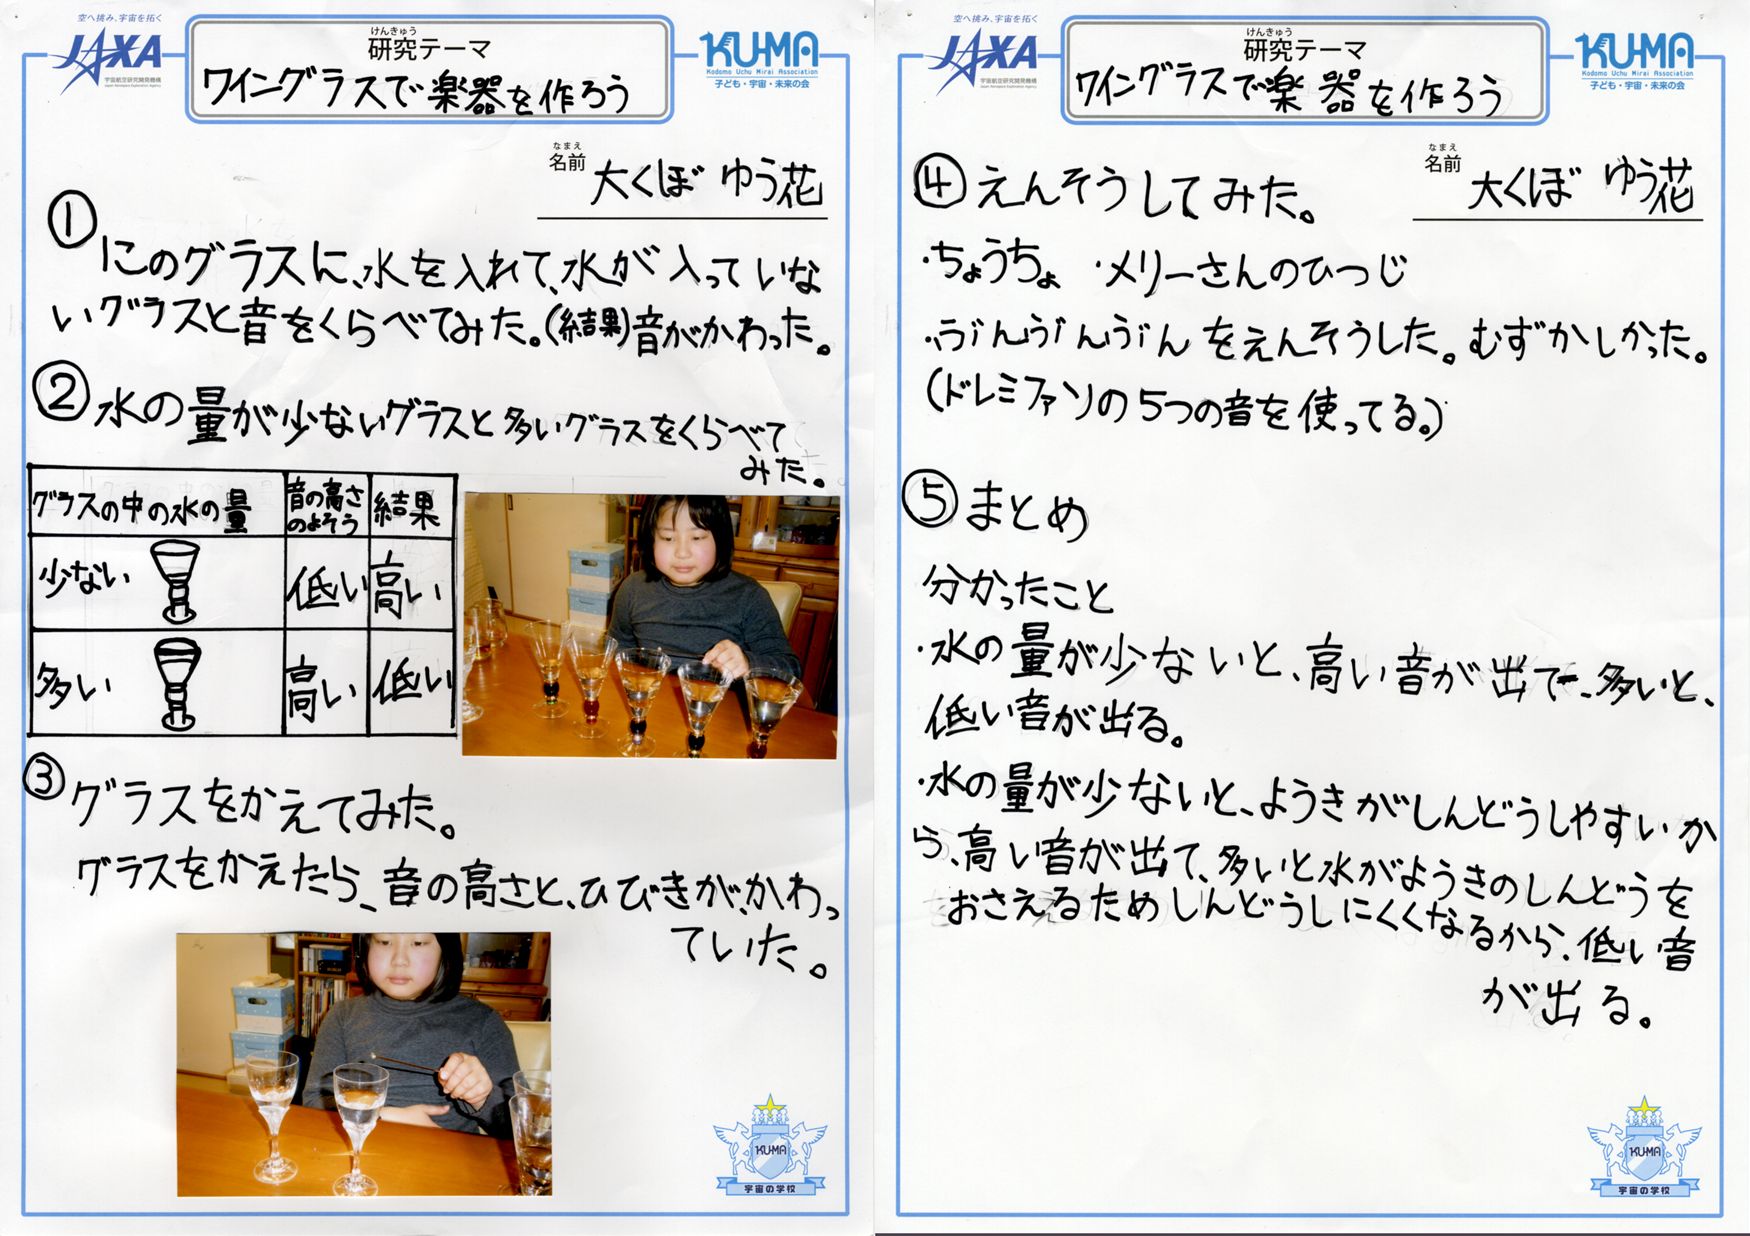 空へ挑み、宇宙を拓く
JAXA
宇宙航空研究開発機構
Japan Aerospace Exploration Agency
けんきゅう
研究テーマ
ワイングラスで楽器を作ろう
KU-MA
Kodomo Uchu Mirai Association
子ども・宇宙・未来の会
なまえ
名前 大くぼ ゆう花
①
にこのグラスに、水を入れて、水が入っていな
いグラスと音をくらべてみた。(結果)音がかわった。
②水の量が少ないグラスと多いグラスをくらべて
みた。
グラスの中の水の量 音の高さのよそう 結果
少ない 低い 高い
多い 高い 低い
③グラスをかえてみた。
グラスをかえたら、音の高さと、ひびきが、かわっ
ていた。
KU-MA
宇宙の学校
空へ挑み、宇宙を拓く
JAXA
宇宙航空研究開発機構
Japan Aerospace Exploration Agency
けんきゅう
研究テーマ
ワイングラスで楽器を作ろう
KU-MA
Kodomo Uchu Mirai Association
子ども・宇宙・未来の会
なまえ
名前 大くぼ ゆう花
④えんそうしてみた。
・ちょうちょ ・メリーさんのひつじ
・ぶんぶんぶんをえんそうした。むずかしかった。
(ドレミファソの5つの音を使ってる。)
⑤まとめ
分かったこと
・水の量が少ないと、高い音が出て、多いと、
低い音が出る。
・水の量が少ないと、ようきがしんどうしやすいか
ら、高い音が出て、多いと水がようきのしんどうを
おさえるためしんどうしにくくなるから、低い音
が出る。
KU-MA
宇宙の学校